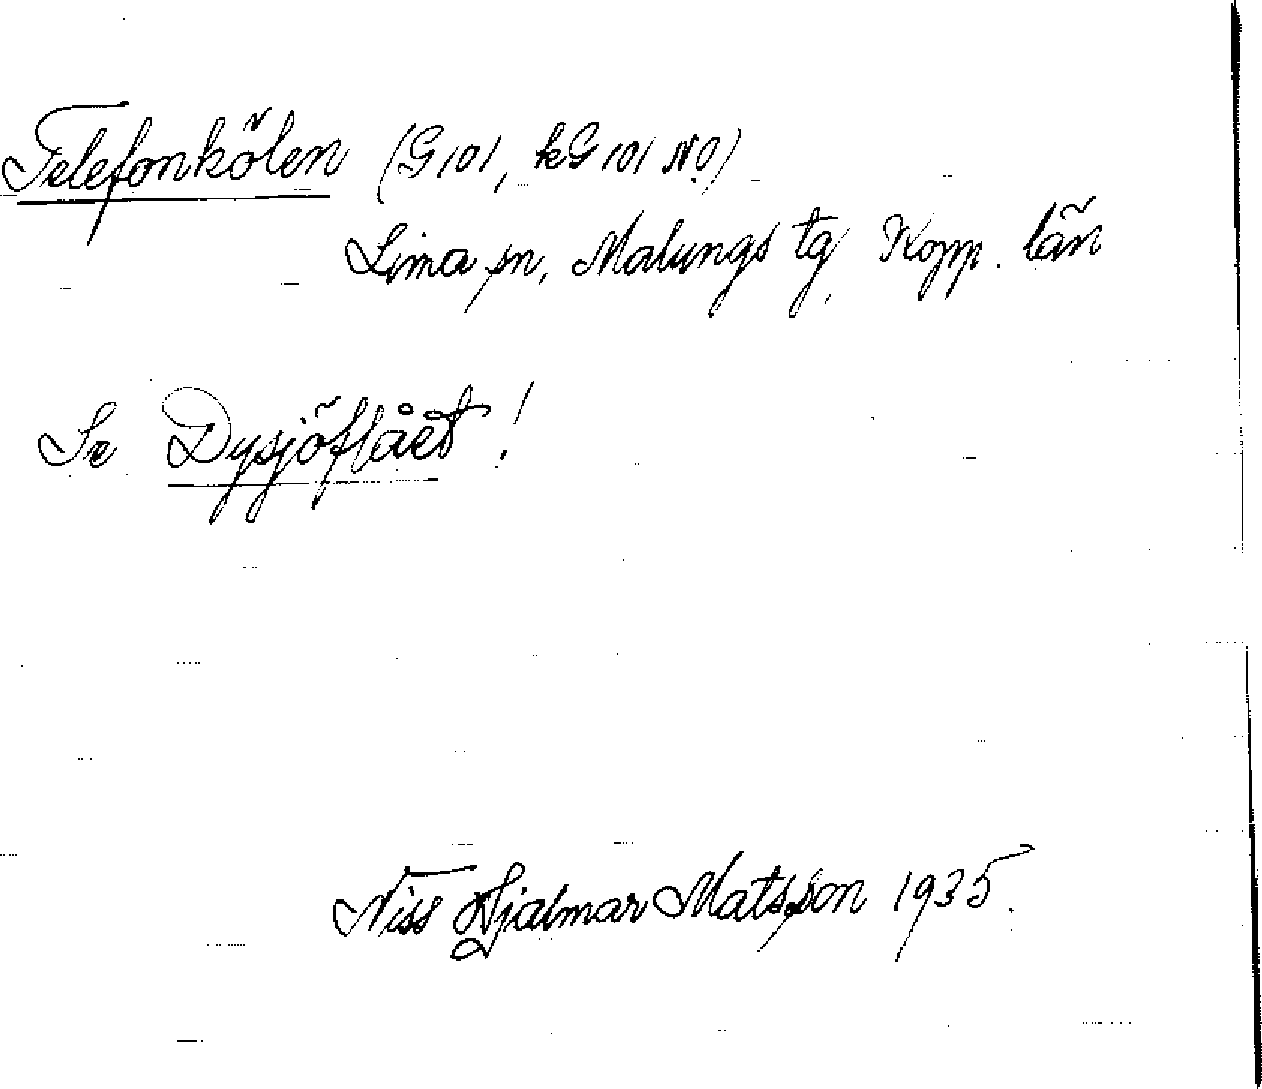 Telefonkölen (G 101, kG 101 NO)
Lima sn, Malungs tg, Kopp. län
Se Dysjöflået!
Niss Hjalmar Matsson 1935.